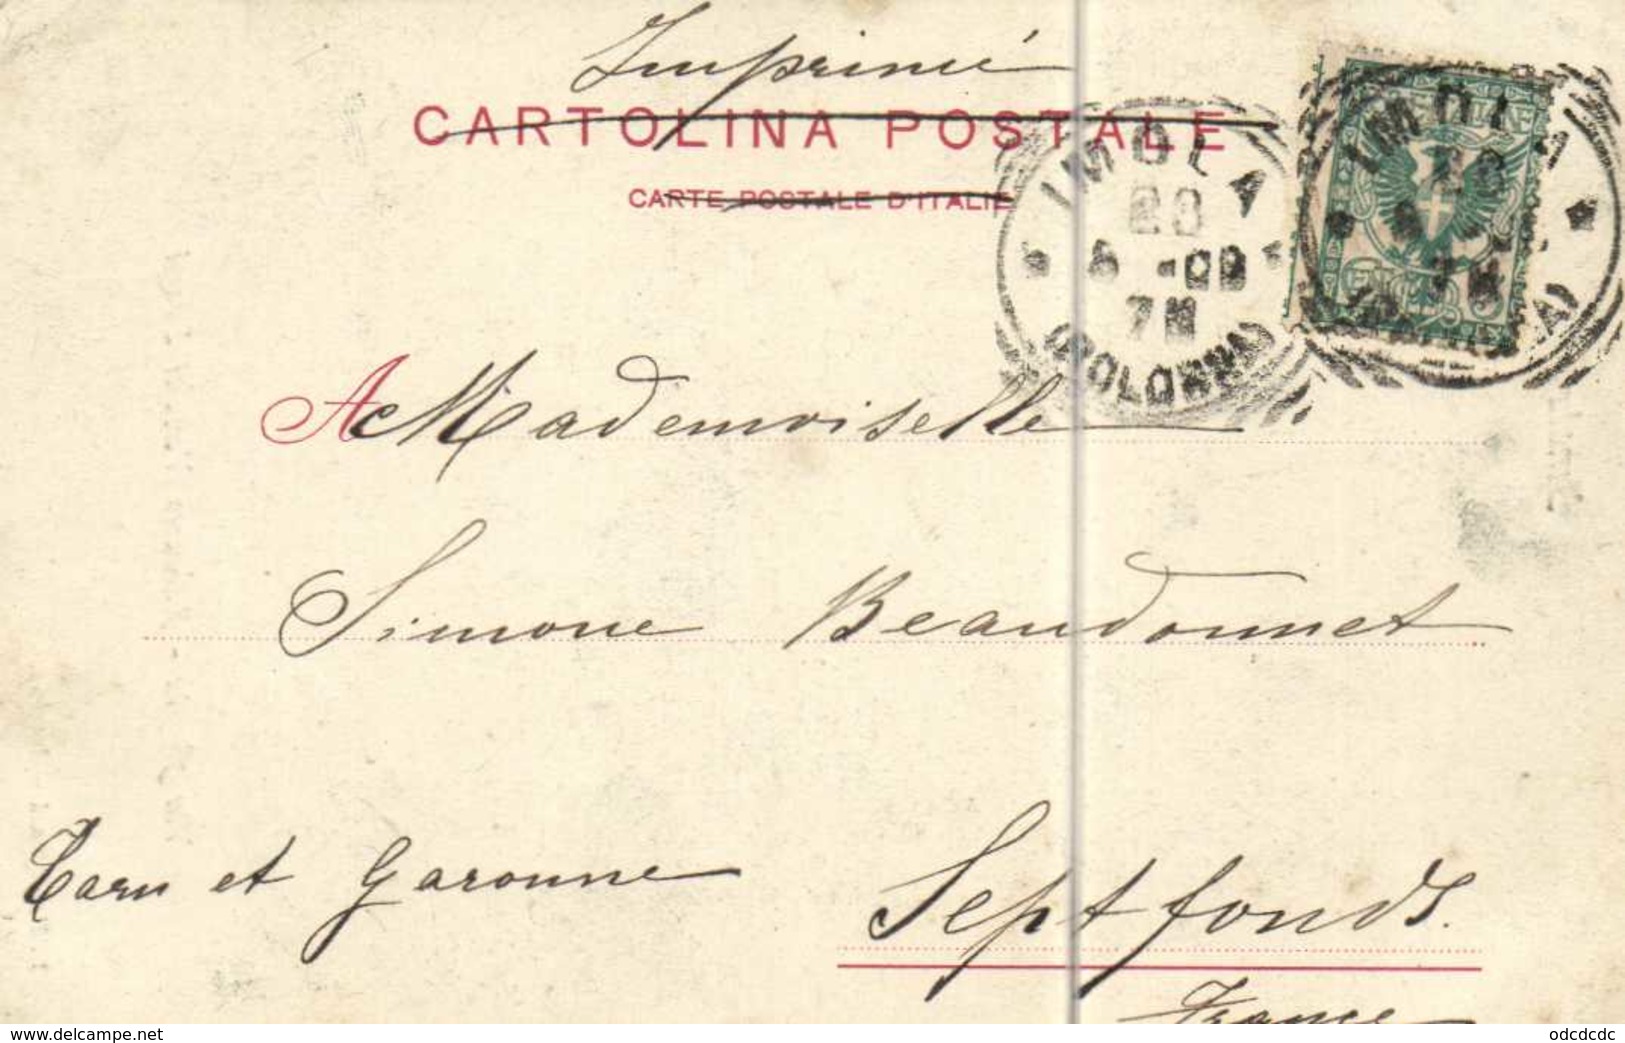 Imprimé
CARTOLINA POSTALE
CARTE POSTALE D'ITALIE
IMOLA
7M
(BOLOGNA)
IMOLA
7M
A Mademoiselle
Simone Beaudonnet
Tarn et Garonne
Septfonds.
France
www.delcampe.net
odcdcdc